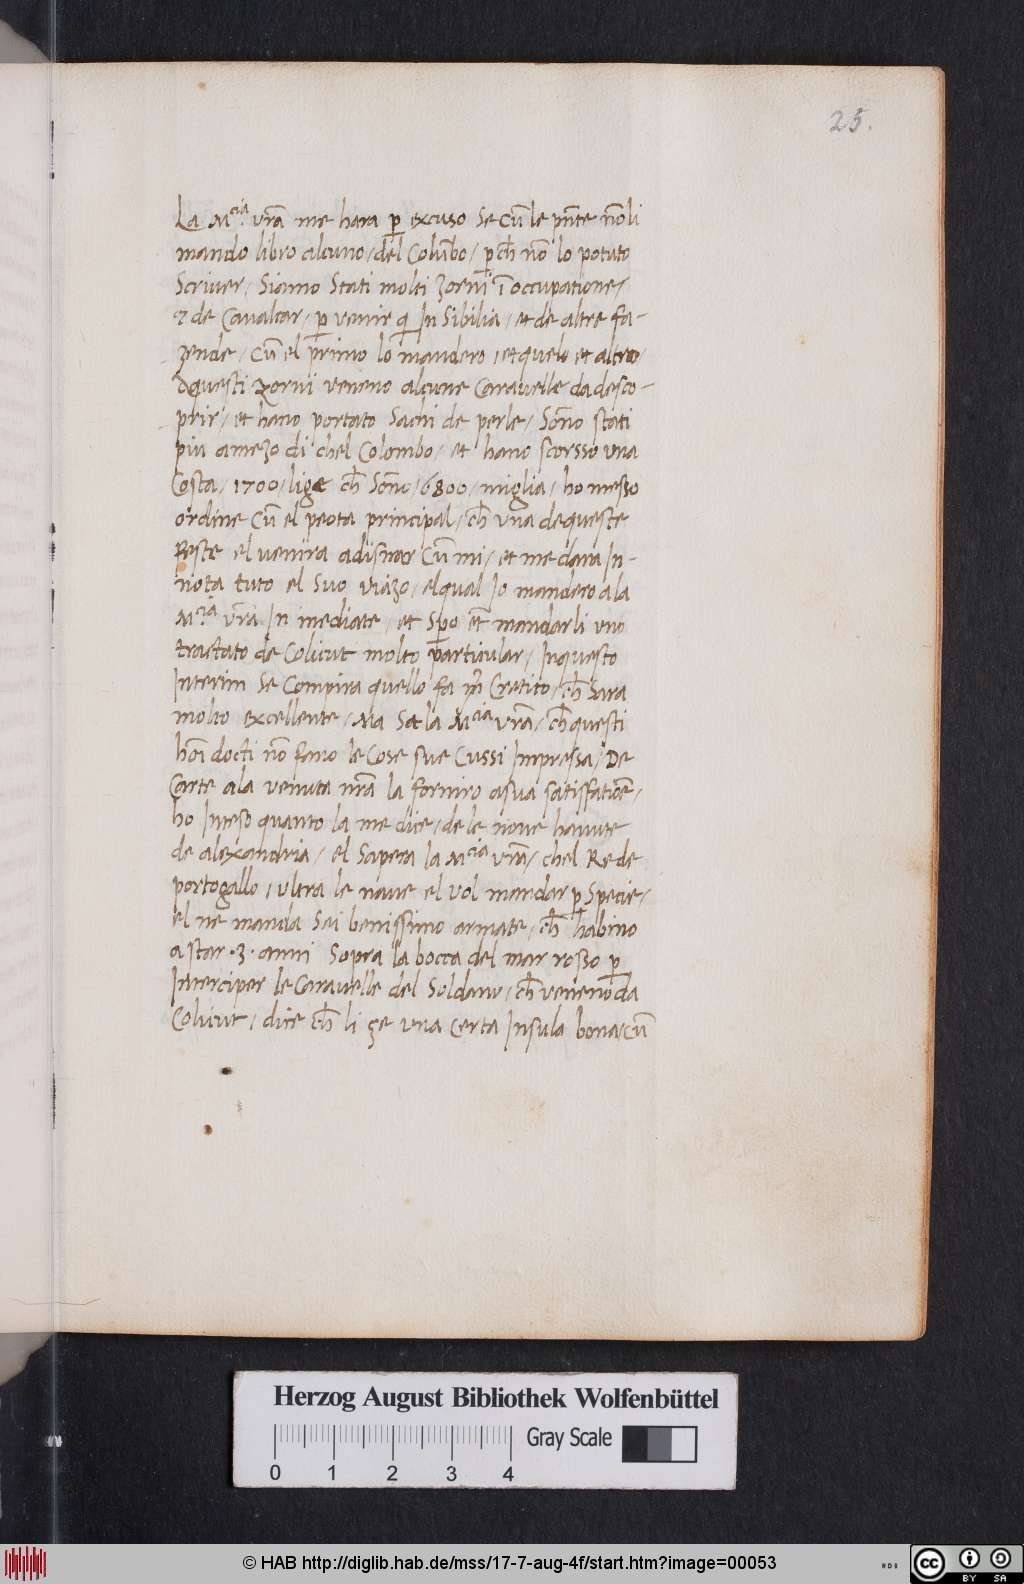 25.
La M.cia vr̄a me hara p̱ excuso se cū le pn̄te nō li
mando libro alcuno / del Colūbo / p̱ch̄ nō lo potuto
Scriver / Siamo Stati molti zorni ī occupatione /
de Cavalcar / p̱ venir q̄ In Sibilia / et de altre fa-
zende / cū el primo lo mandero / et quelo et altro /
questi zorni veneno alcune Caravelle da desco-
prir / et hano portato Sachi de perle / Sōno stati
piu amezo di chel Colombo / et hano scorsso una
Costa / 1700 / lige ch̄ Sōno / 6800 / miglia / ho messo
ordine cū el peota principal / ch̄ una de queste
feste el venira a disnar cū mi / et me dara In
nota tuto el Suo viazo / el qual Io mandero a la
M.cia vr̄a In mediate / et Sp̱o et mandarli uno
tractato de Colicut molto particular / In questo
Interim Se Compira quello fa Cretico / ch̄ Sara
molto excellente / Ma Sa la M.cia vr̄a / ch̄ questi
hoī docti nō fano le Cose sue Cussi Impressa / De
Carte a la venuta nr̄a la forniro a sua satisfatiōe /
ho Inteso quanto la me dice / de le nove havute
de alexandria / el Sapera la M.cia vr̄a / chel Re de
portogallo / ultra le nave el vol mandar p̱ Specie /
el ne manda Sei benissimo armate / ch̄ habino
a star .3. anni Sopra la bocca del mar rosso p̱
Interciper le Caravelle del Soldano / ch̄ veneno da
Colicut / dice ch̄ li çe una certa Insula bona / cū
Herzog August Bibliothek Wolfenbüttel
Gray Scale
0 1 2 3 4
© HAB http://diglib.hab.de/mss/17-7-aug-4f/start.htm?image=00053
cc BY SA